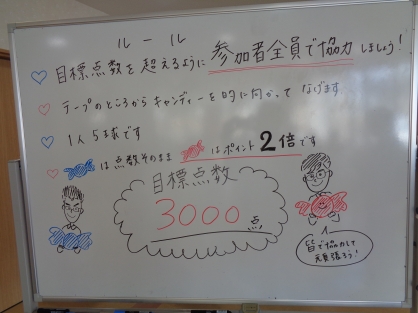 ルール
目標点数を超えるように参加者全員で協力しましょう!
テープのところからキャンディーを的に向かってなげます
1人5球です
は点数そのまま はポイント2倍です
目標点数
3000点
皆で協力して
頑張ろう!